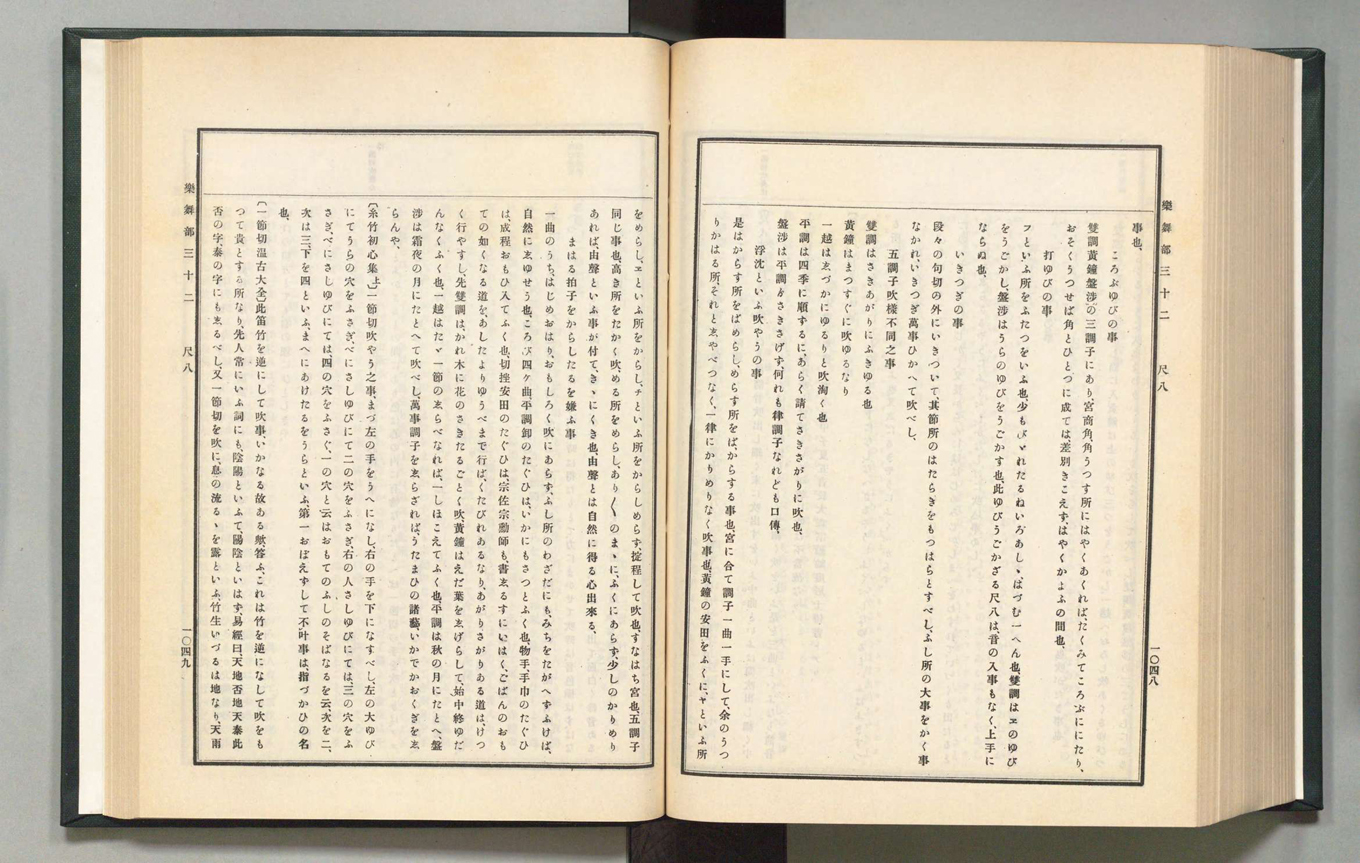 樂舞部三十二 尺八
一〇四八
事也、
ころぶゆびの事
雙調黃鐘盤涉の三調子にあり、宮商角、角うつす所にはやくあくれば、たくみてころぶににたり、
おそくうつせば角とひとつに成ては差別きこえず、はやくかよふの間也、
打ゆびの事
フといふ所をふたつをいふ也、少もびゞれたるねいろあし、はづむ一へん也、雙調はエのゆび
をうごかし、盤涉はうらのゆびをうごかす也、此ゆびうごかざる尺八は、音の入事もなく、上手に
ならぬ也、
いきつぎの事
段々の句切の外にいきついで、其節所のはたらきをもつはらとすべし、ふし所の大事をかく事
なかれ、いきつぎ萬事ひかへて吹べし、
五調子吹樣不同之事
雙調はさきあがりにふきゆる也
黃鐘はまつすぐに吹ゆるなり
一越はゑづかにゆるりと吹渕く也
平調は四季に順するに、あらく請てさきさがりに吹也、
盤涉は平調よりさきさげず、何れも律調子なれども口傳、
浮沈といふ吹やうの事
是はからす所をばめらし、めらす所をば、からする事也、宮に合て調子一曲一手にして、余のうつ
りかはる所、それとゑやべつなく、一律にかりめりなく吹事也、黃鐘の安田をふくに、ヤといふ所
をめらし、エといふ所をからし、チといふ所をからしめらす、掟程して吹也、すなはち宮也、五調子
同じ事也、高き所をたかく吹、める所をめらし、あり〳〵のまゝに、ふくにあらず、少しのかりめり
あれば、由聲といふ事が付て、きゝにくき也、由聲とは自然に得る心出來る、
まはる拍子をからしたるを嫌ふ事
一曲のうち、はじめおはり、おもしろく吹にあらず、ふし所のわざだにも、みちをたがへずふけば、
自然にゑゆせう也、ころび四ケ曲、平調卸のたぐひは、いかにもさつとふく也、物手、手巾のたぐひ
は、成程おもひ入てふく也、切挫安田のたぐひは、宗佐宗勳師も書ゑるすにいはく、ごばんのおも
ての如くなる道を、あしたよりゆうべまで行ば、くたびれあるなり、あがりさがりある道は、けつ
く行やすし、先雙調は、かれ木に花のさきたるごとく吹、黃鐘はえだ葉をゑげらして、始中終ゆだ
んなくふく也、一越はたゞ一節のゑらべなれば、一しほこえてふく也、平調は秋の月にたとへ、盤
涉は霜夜の月にたとへて吹べし、萬事調子をゑらざれば、うたまひの諸藝、いかでかおくぎをゑ
らんや、
〔糸竹初心集上〕一節切吹やう之事、まづ左の手をうへになし、右の手を下になすべし、左の大ゆび
にてうらの穴をふさぎ、べにさしゆびにて二の穴をふさぎ、右の人さしゆびにては、三の穴をふ
さぎ、べにさしゆびにては四の穴をふさぐ、一の穴と云はおもてのふしのそばなるを云、次を二、
次は三、下を四といふ、まへにあけたるをうらといふ、第一おぼえずして不叶事は、指づかひの名
也、
〔一節切溫古大全〕此笛竹を逆にして吹事、いかなる故ある歟、答ふ、これは竹を逆になして吹をも
つて貴とする所なり、先人常にいふ詞にも、陰陽といふて陽陰といはず、易經曰、天地否、地天泰、此
否の字、泰の字にもゑるべし、又一節切を吹に、息の流るゝを露といふ、竹生いづるは地なり、天雨
樂舞部三十二 尺八
一〇四九